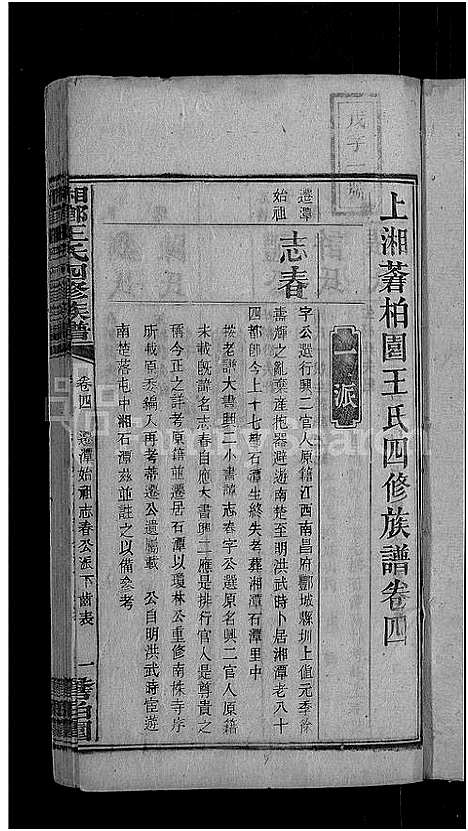 上湘蒼柏園王氏四修族譜卷四
一派
遷潭
始祖
志春
字公選行興二官人原籍江西南昌府酆城縣圳上值元季徐
壽輝之亂棄產抱器避遊南楚至明洪武時卜居湘潭老八十
四都卽今上十七都石潭生終失考葬湘潭石潭里中
按老譜大書興二小書諱志春字公選原名興二官人原籍
未載旣諱名志春自應大書興二應是排行官人是尊貴之
稱今正之詳考原籍並遷居石潭以瓊林公重修南株寺序
所載原委編入再考蒂遷公遺囑載 公自明洪武時宦遊
南楚落屯中湘石潭茲並註之以備參考
湘鄉王氏四修族譜
卷四 遷潭始祖志春公派下齒表
一
蒼柏園